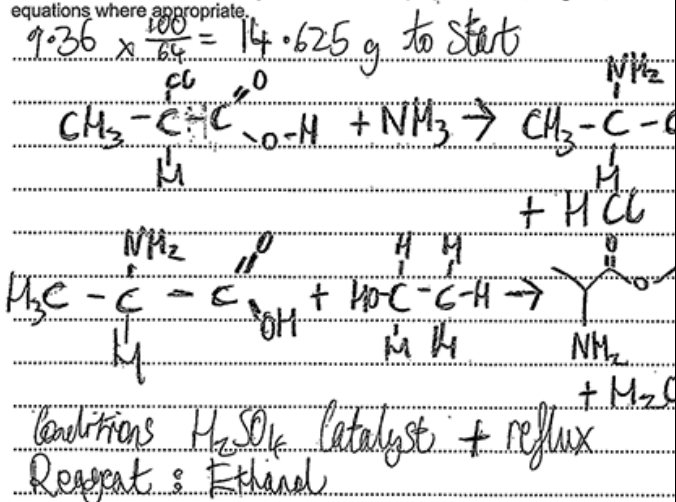 equations where appropriate.
9.36 x 100/64 = 14.625 g to start
Cl O NH2
CH3 - C - C + NH3 → CH3 - C - C
O-H
H H
+ HCl
NH2 O H H O
H3C - C - C + HO-C-C-H → O
OH
H H H NH2
+ H2O
Conditions H2SO4 Catalyst + reflux
Reagent : Ethanol